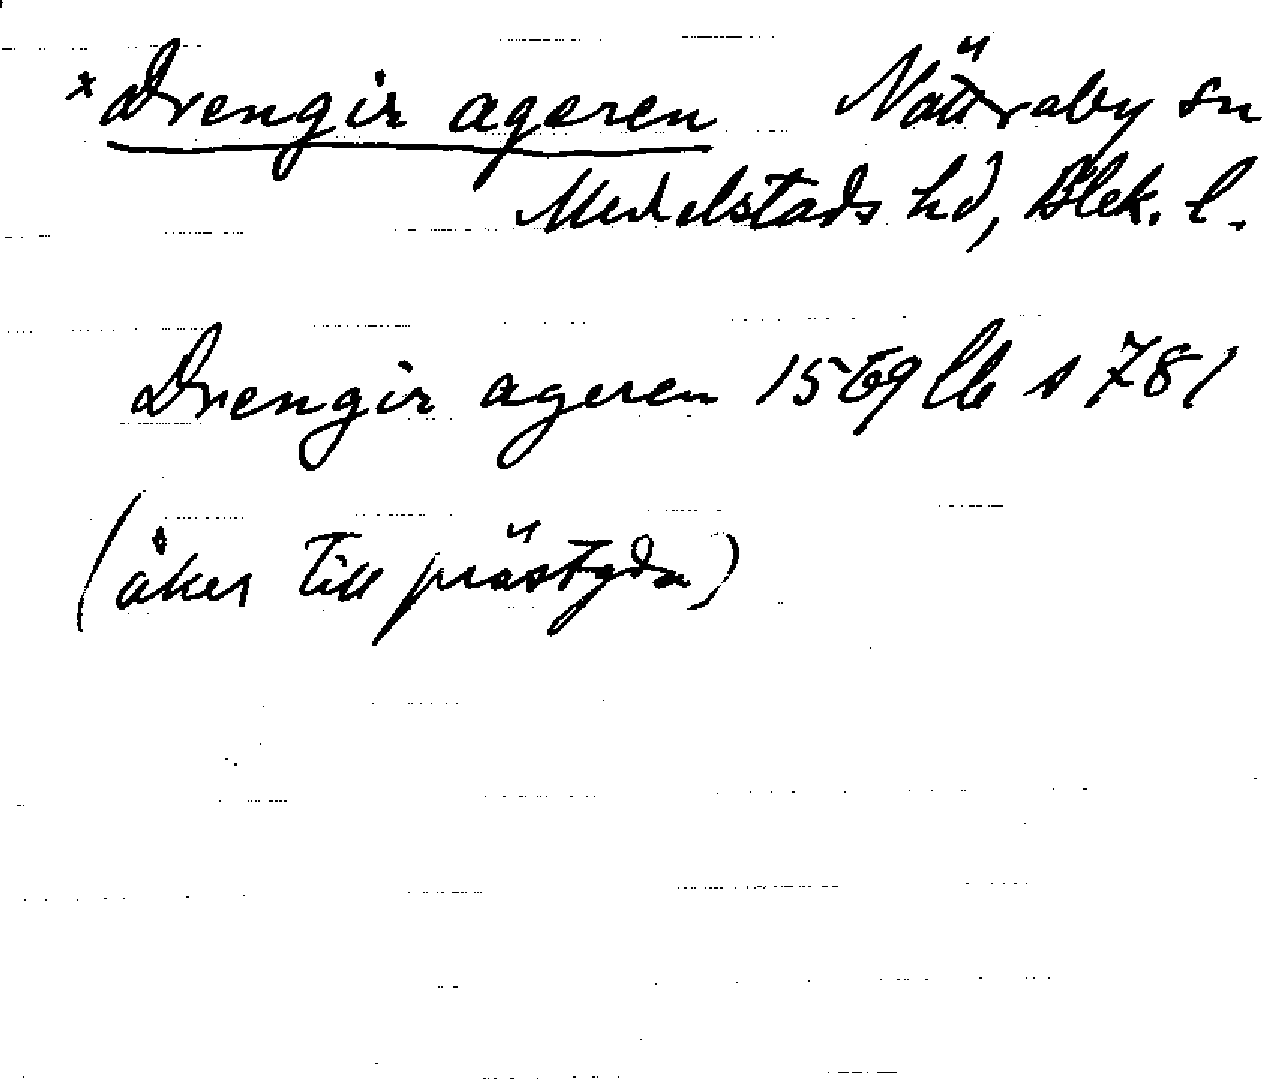 *Drengir ageren Nättraby sn
Medelstads hd, Blek. l.
Drengir ageren 1569 lb s 781
(åker till prästgdn)